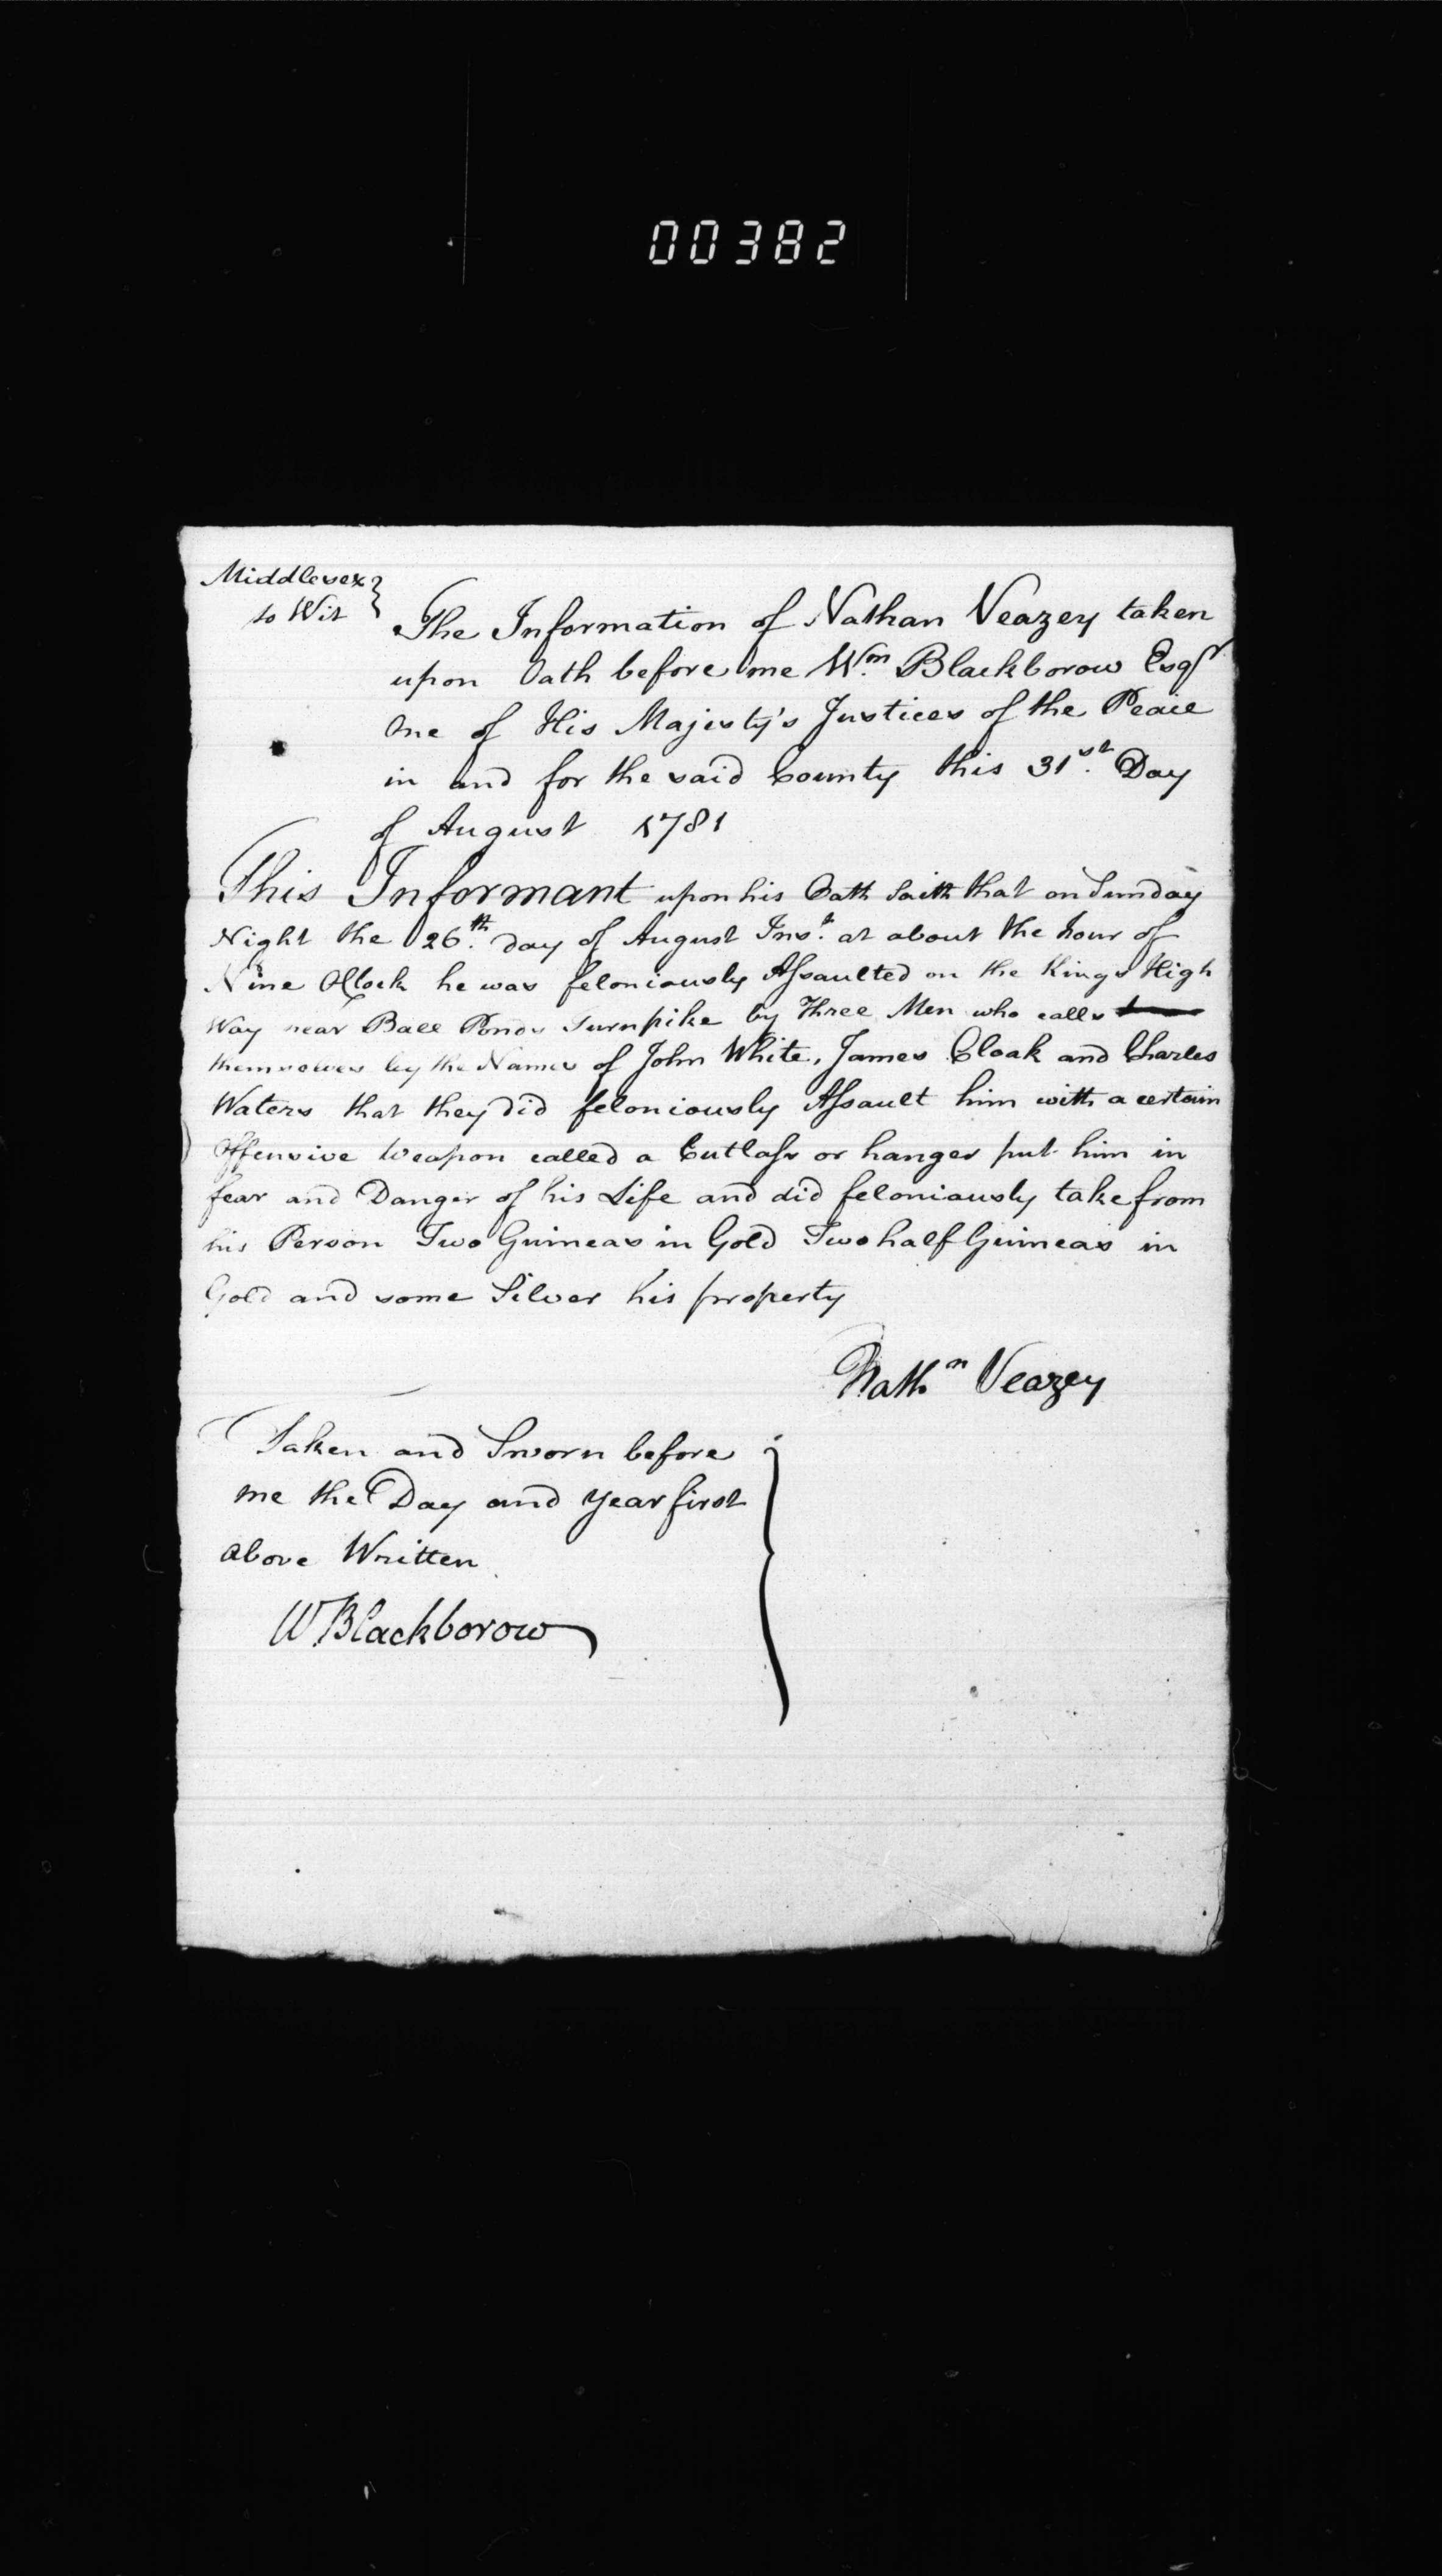 00382
Middlesex
to Wit
The Information of Nathan Veazey taken
upon Oath before me Wm. Blackborow Esqr
One of His Majesty's Justices of the Peace
in and for the said County this 31st. Day
of August 1781
This Informant upon his Oath Saith that on Sunday
Night the 26th. day of August Inst. at about the hour of
Nine OClock he was feloniously Assaulted on the Kings High
Way near Ball Ponds Turnpike by Three Men who calls
themselves by the Names of John White, James Cloak and Charles
Waters that they did feloniously Assault him with a certain
Offensive Weapon called a Cutlass or hanger put him in
fear and Danger of his Life and did feloniously take from
his Person Two Guineas in Gold Two half Guineas in
Gold and some Silver his property
Nathn Veazey
Taken and Sworn before
me the Day and Year first
above Written
W Blackborow